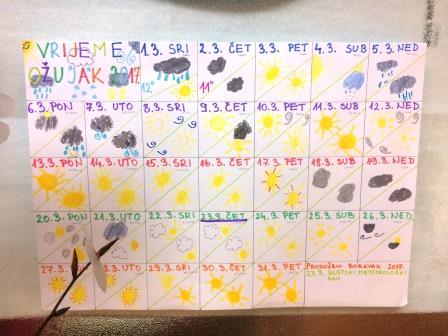 VRIJEME
OŽUJAK 2017.
1.3. SRI
12°
2.3. ČET
11°
3.3. PET
4.3. SUB
5.3. NED
6.3. PON
7.3. UTO
8.3. SRI
9.3. ČET
10.3. PET
11.3. SUB
12.3. NED
13.3. PON
14.3. UTO
15.3. SRI
16.3. ČET
17.3. PET
18.3. SUB
19.3. NED
20.3. PON
21.3. UTO
22.3. SRI
23.3. ČET
24.3. PET
25.3. SUB
26.3. NED
27.3. PON
28.3. UTO
29.3. SRI
30.3. ČET
31.3. PET
PRODUŽENI BORAVAK 2017.
23.3. SVJETSKI METEOROLOŠKI
DAN